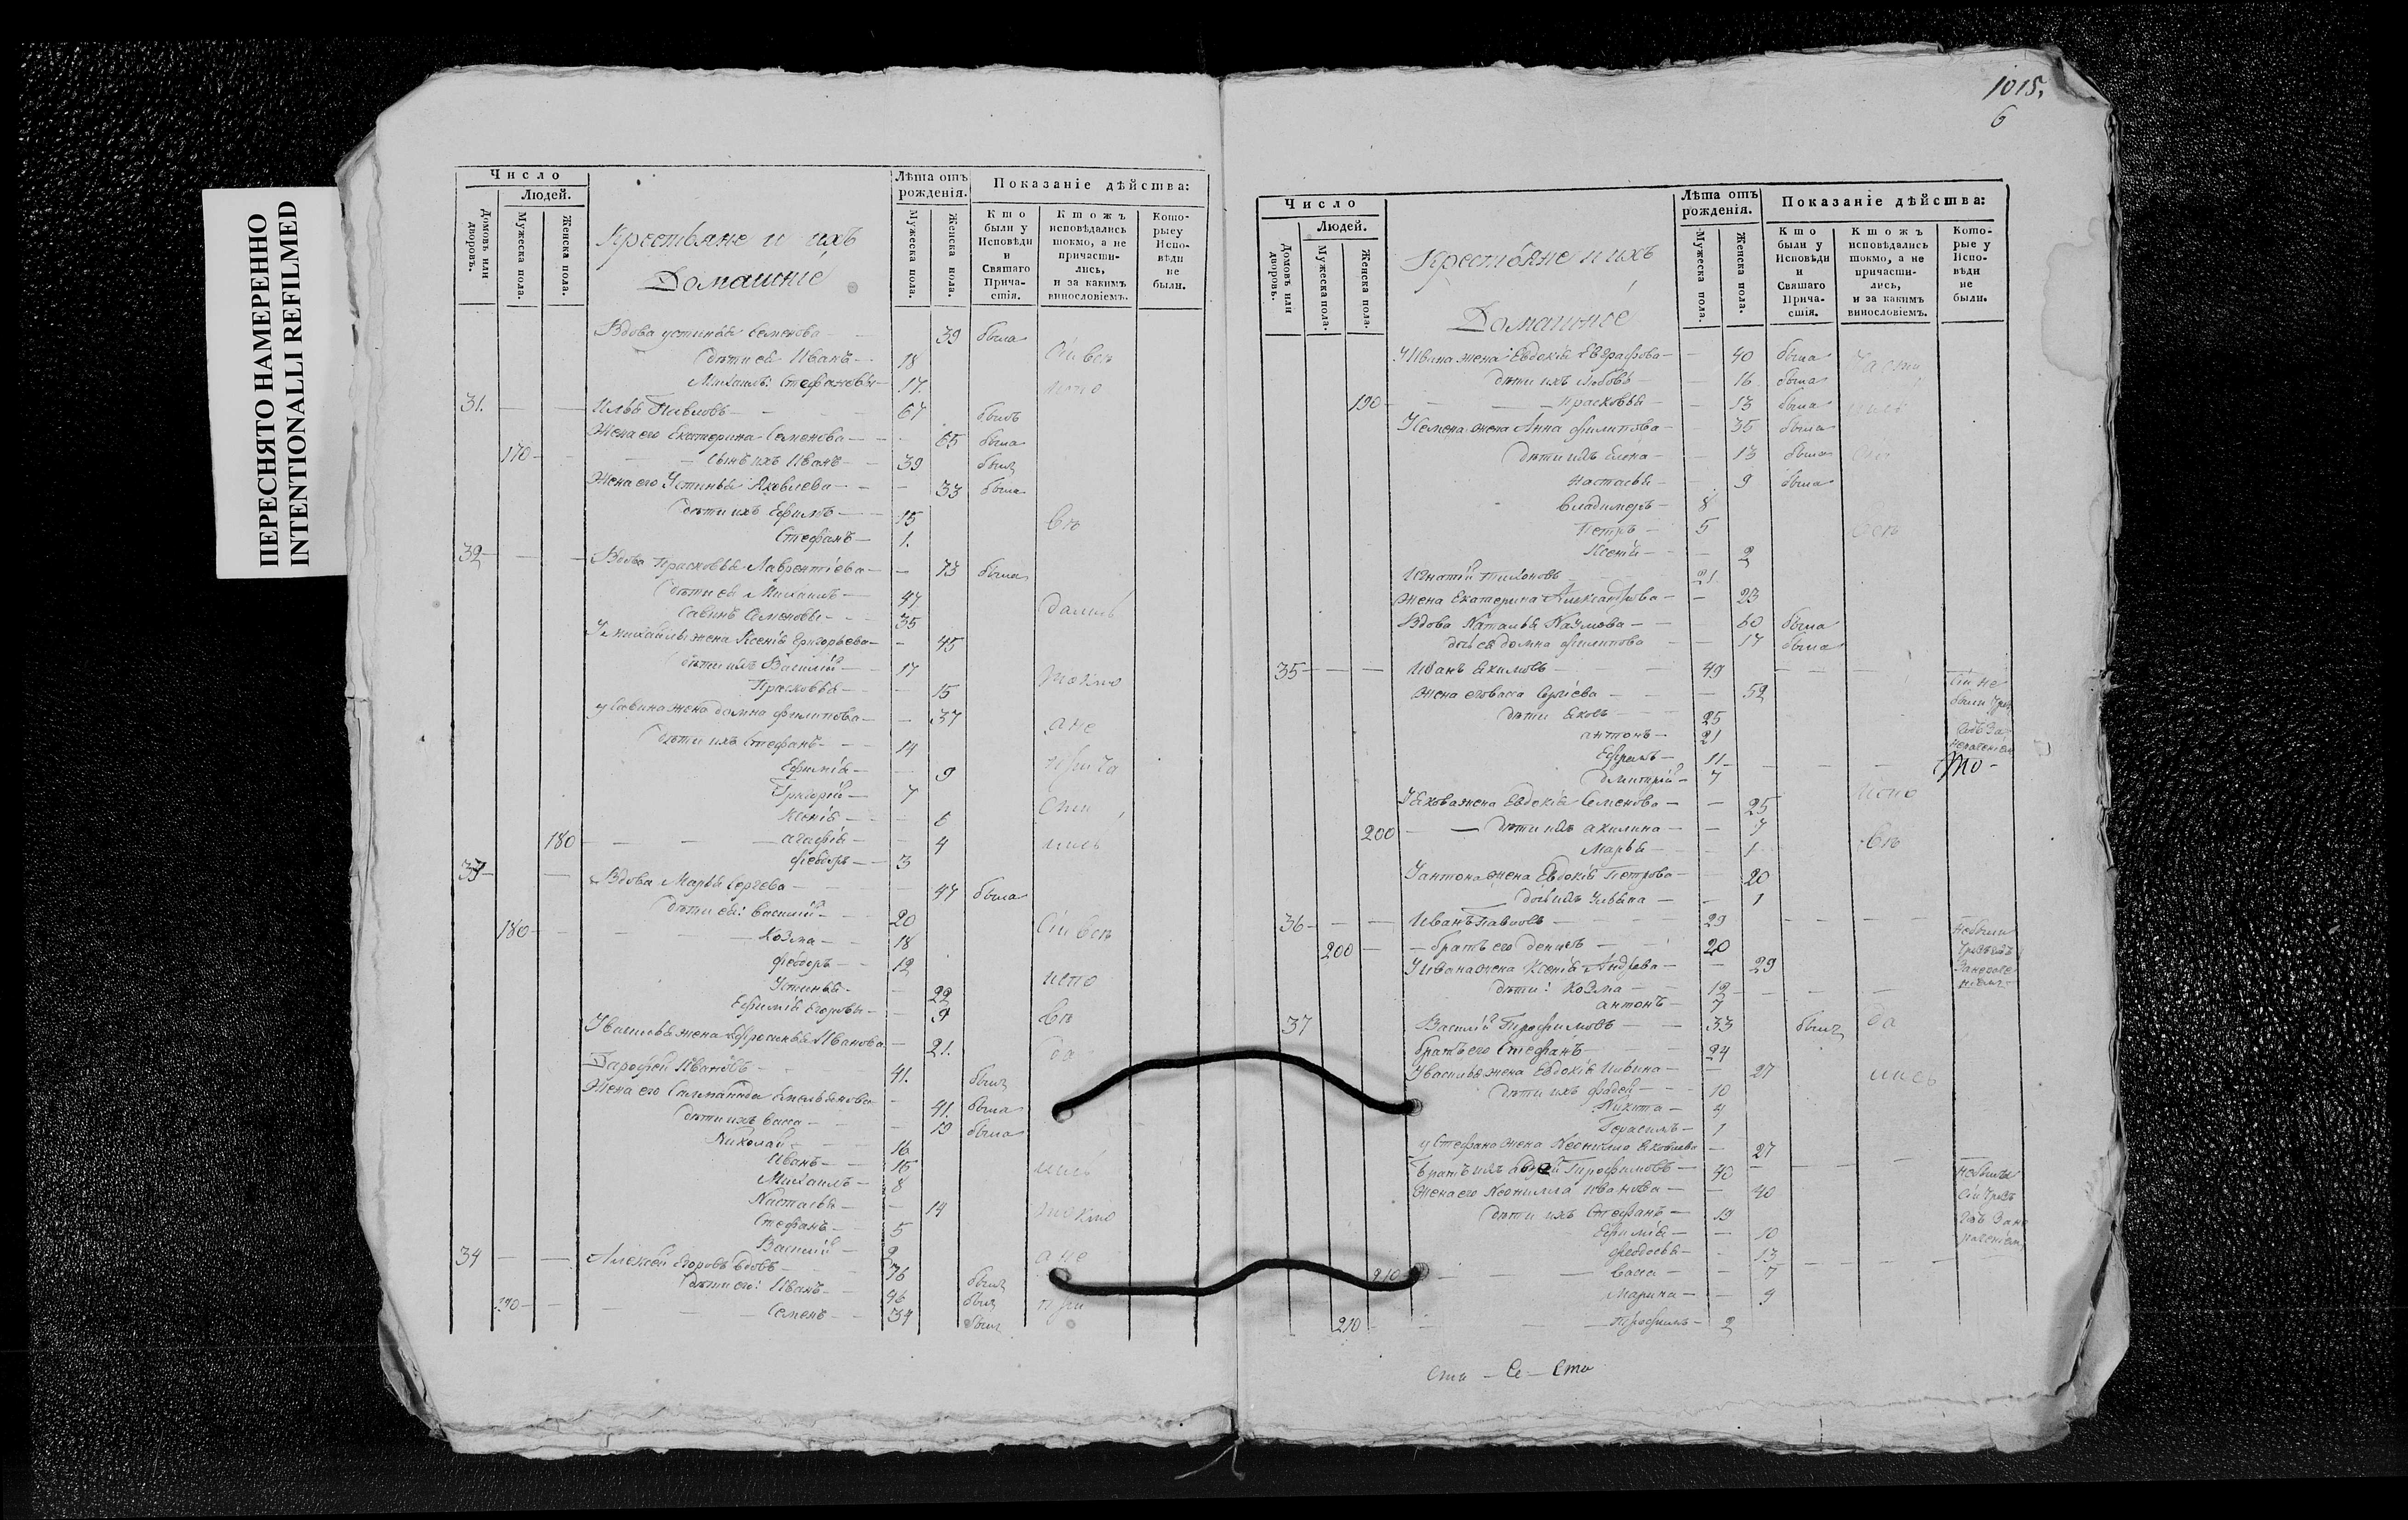 ПЕРЕСНЯТО НАМЕРЕННО
INTENTIONALLI REFILMED
1015.
6
Число
Людей.
Домовъ или дворовъ.
Мужеска пола.
Женска пола.
Крестьяне и ихъ
Домашніе
Лѣта отъ рожденія.
Мужеска пола.
Женска пола.
Показаніе дѣйства:
Кто были у Исповѣди и Святаго Прича-стія.
Ктожъ исповѣдались токмо, а не причасти-лись, и за какимъ винословіемъ.
Кото-рыеу Испо-вѣди не были.
Вдова устинья Семенова 39 была
дѣти ея Иванъ 18
Михаилъ Стефановы 17
31. Илья Павловъ 67 былъ
Жена его Екатерина Семенова 65 была
170 сынъ ихъ Иванъ 39 былъ
Жена его Устинья Яковлева 33 была
дѣти ихъ Ефимъ 15
Стефанъ 1.
32 Вдова Прасковья Лаврентіева 73 была
дѣти ея Михаилъ 47
Савинъ Семеновы 35
У михайлы жена Ксенія Григорьева 45
дѣти ихъ Василій 17
Прасковья 15
у Савина жена домна филипова 37
дѣти ихъ Стефанъ 14
Ефимія 9
Григорій 7
Ксенія 6
180 агафія 4
феодоръ 3
33 Вдова Марья Сергева 47 была
дѣти ея: Василий 20
180 Козма 18
феодоръ 12
Устинья 22
Ефимія Егоровы 9
У василья жена Ефросинья Иванова 21.
Дарофей Ивановъ 41. былъ
Жена его Саламанида Емельянова 41. была
дѣти ихъ васса 19 была
Николай 16
Иванъ 15
Михаилъ 8
Настасья 14
Стефанъ 5
Василій 2
34 Алексей Егоровъ вдовъ 76 былъ
дѣти его: Иванъ 46 былъ
190 Семенъ 34 былъ
Сіи всѣ
испо
вѣ
дались
токмо
а не
прича
сти
лись
Сіи всѣ
испо
вѣ
да
лись
токмо
а не
при
Число
Людей.
Домовъ или дворовъ.
Мужеска пола.
Женска пола.
Крестьяне и ихъ
Домашніе
Лѣта отъ рожденія.
Мужеска пола.
Женска пола.
Показаніе дѣйства:
Кто были у Исповѣди и Святаго Прича-стія.
Ктожъ исповѣдались токмо, а не причасти-лись, и за какимъ винословіемъ.
Кото-рые у Испо-вѣди не были.
У Ивана жена Евдокія Евграфова 40 была
дѣти ихъ Любовь 16 была
190 Прасковья 13 была
У Семена жена Анна филипова 35 была
дѣти ихъ Елена 13 была
Настасья 9 была
владимеръ 8
Петръ 5
Ксенія 2
Игнатій тихоновъ 21
жена Екатерина Александрова 23
Вдова Наталья Наумова 60 была
дочь ея домна филипова 17 была
35 Иванъ Екимовъ 49
Жена его васса Сергіева 52
дѣти Яковъ 25
антонъ 21
Ефремъ 11
Дмитрій 7
У Якова жена Евдокія Семенова 25
200 дѣти ихъ акилина 7
Марья 1
У антона жена Евдокія Петрова 20
дочь ихъ Ульяна 1
36 Иванъ Павловъ 29
200 братъ его денисъ 20
У ивана жена Ксенія Андрева 29
дѣти: Козма 12
антонъ 7
37 Василій Трофимовъ 33 былъ
братъ его Стефанъ 24
У василья жена Евдокія Ильина 27
дѣти ихъ фадей 10
Никита 4
Герасимъ 1
у Стефана жена Неонила Яковлева 27
Братъ ихъ авдей Трофимовъ 40
Жена его Неонилла иванова 40
дѣти ихъ Стефанъ 19
Ефимія 10
феодосья 13
210 васса 7
Марина 4
210 Трофимъ 2
лись
всѣ
испо
вѣ
да
лись
сіи не
были
то
не были
не были
Ста - Се - Ста